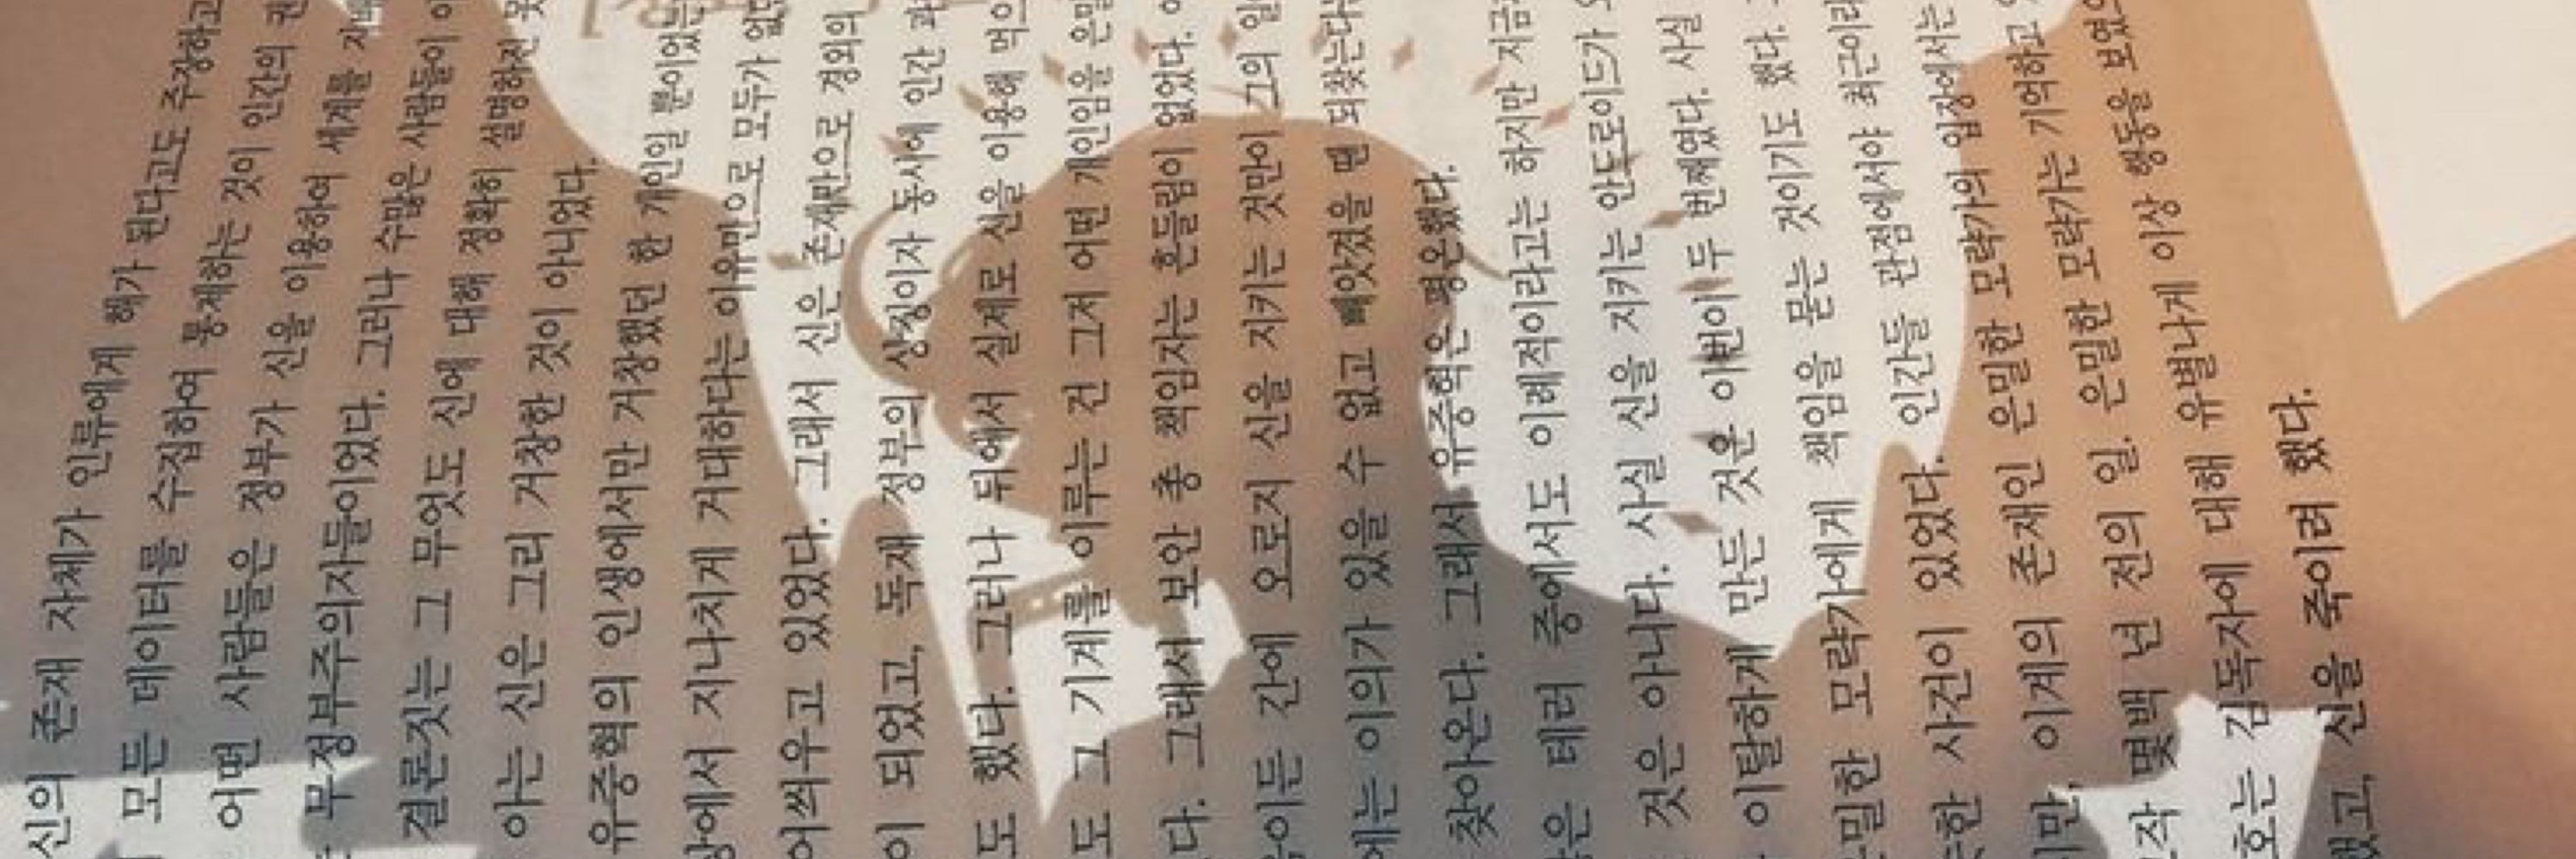 신의 존재 자체가 인류에게 해가 된다고도 주장하고
모든 데이터를 수집하여 통제하는 것이 인간의 권
어떤 사람들은 정부가 신을 이용하여 세계를 지배
무정부주의자들이었다. 그러나 수많은 사람들이
결론짓는 그 무엇도 신에 대해 정확히 설명하진 못
아는 신은 그리 거창한 것이 아니었다.
유중혁의 인생에서만 거창했던 한 개인일 뿐이었는
상에서 지나치게 거대하다는 이유만으로 모두가 없던
어씌우고 있었다. 그래서 신은 존재만으로 경외의
이 되었고, 독재 정부의 상징이자 동시에 인간
도 했다. 그러나 뒤에서 실제로 신을 이용해 먹으
도 그 기계를 이루는 건 그저 어떤 개인임을 은밀
다. 그래서 보안 총 책임자는 흔들림이 없었다.
이든 간에 오로지 신을 지키는 것만이 그의 일
에는 이의가 있을 수 없고 빼앗겼을 땐 되찾는다
찾아온다. 그래서 유중혁은 평온했다.
은 테러 중에서도 이례적이라고는 하지만 지금
것은 아니다. 사실 신을 지키는 안드로이드가
이탈하게 만든 것은 이번이 두 번째였다. 사실
밀한 모략가에게 책임을 묻는 것이기도 했다.
한 사건이 있었다. 인간들 관점에서야 최근이라
만, 이계의 존재인 은밀한 모략가의 입장에서는
작 몇백 년 전의 일. 은밀한 모략가는 기억하고
호는 김독자에 대해 유별나게 이상 행동을 보였
했고, 신을 죽이려 했다.